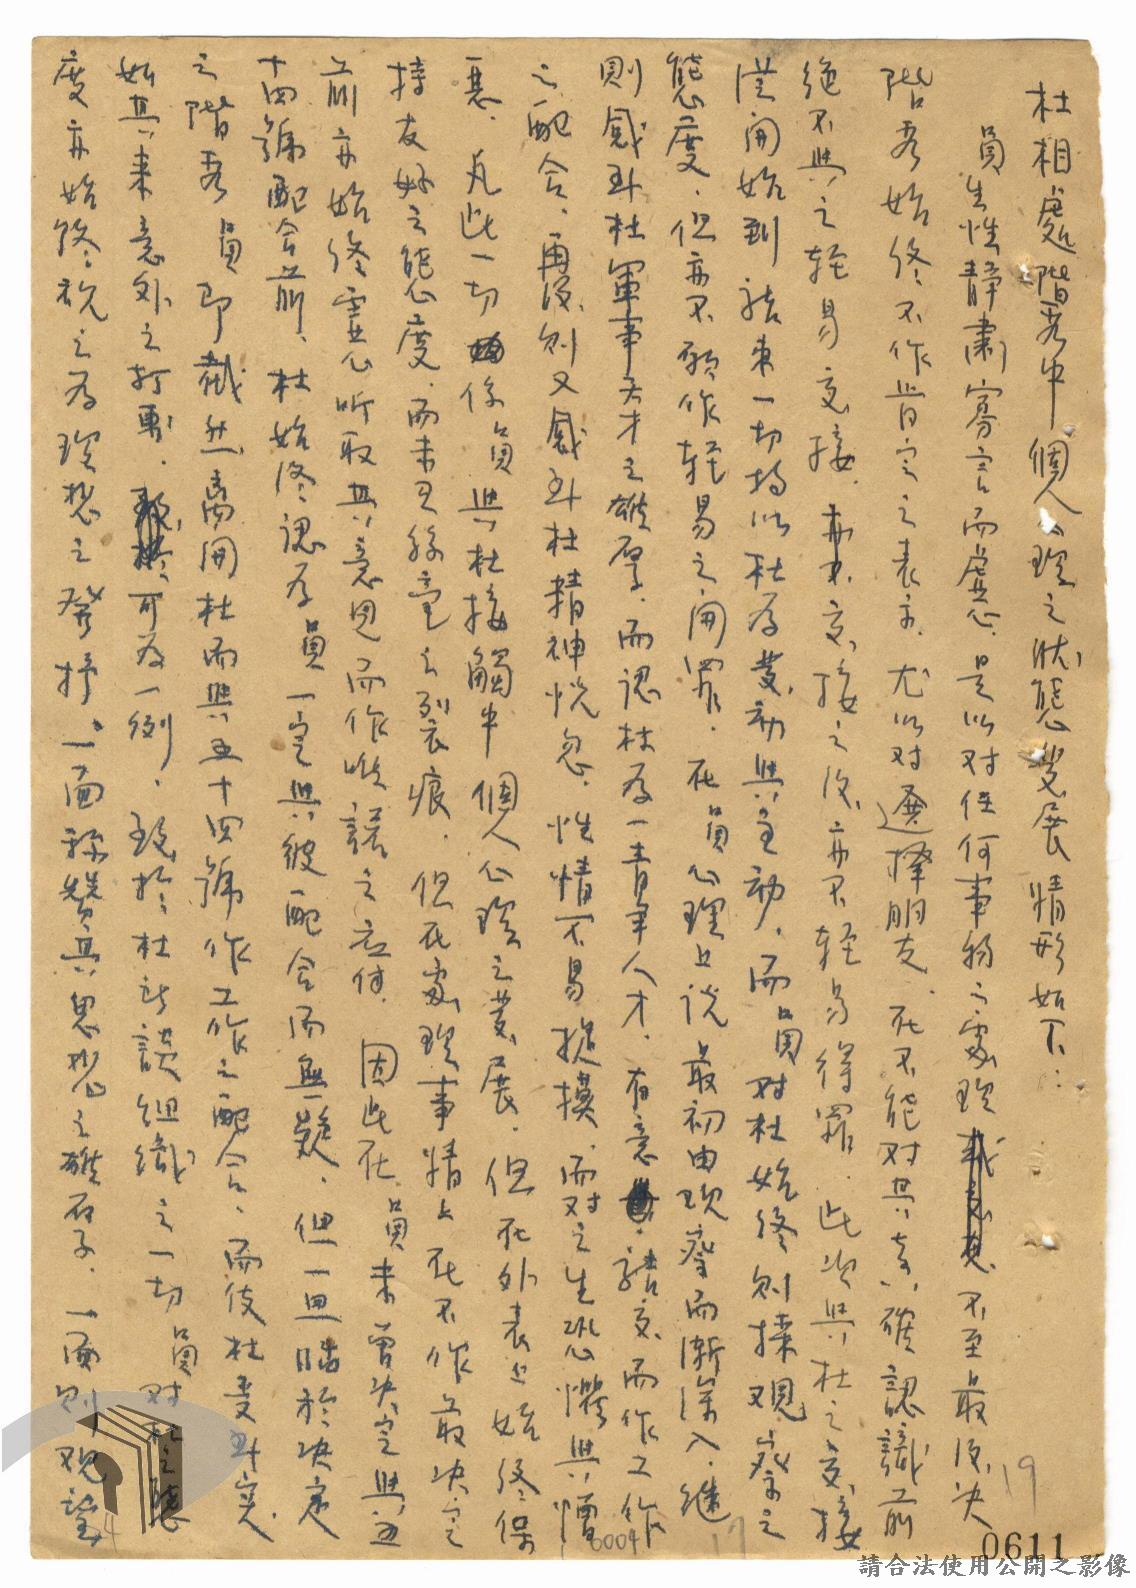 杜相處階段中個人心理之狀態發展情形如下：
員生性靜肅寡言而虛心，是以对任何事物之處理不至最後決
階段始終不作肯定之表示，尤以对選擇朋友，在不能对其真確認識前
絕不與之輕易交接，交接之後亦不輕易得罪，此次與杜之交接
從開始到結束一切均以杜為發動與主動，而員对杜始終則採观察之
態度，但亦不願作輕易之開罪，在員心理上說最初由观察而漸深入，繼
則感到杜軍事天才之雄厚，而認杜為一青年人才，有意結交而作工作
之配合，再後則又感到杜精神恍忽，性情不易捉摸，而对之生恐懼與憎
惡，凡此一切係員與杜接觸中個人心理之發展，但在外表上始終保
持友好之態度，而未見絲毫之裂痕，但在處理事情上在不作最決定
前亦始終虛心听取其意見而作唯諾之应付，因此在員未曾決定與五
十四號配合前，杜始終認為員一定與彼配合而無疑，但一旦臨於決定
之階段員即截然离開杜而與五十四號作工作之配合，而使杜受到突
如其來意外之打擊，可為一例，致於杜所談組織之一切員对杜之態
度亦始終視之為理想之發抒，一面称贊其思想之雄厚，一面則观望
0611
19
17
6004
4
請合法使用公開之影像